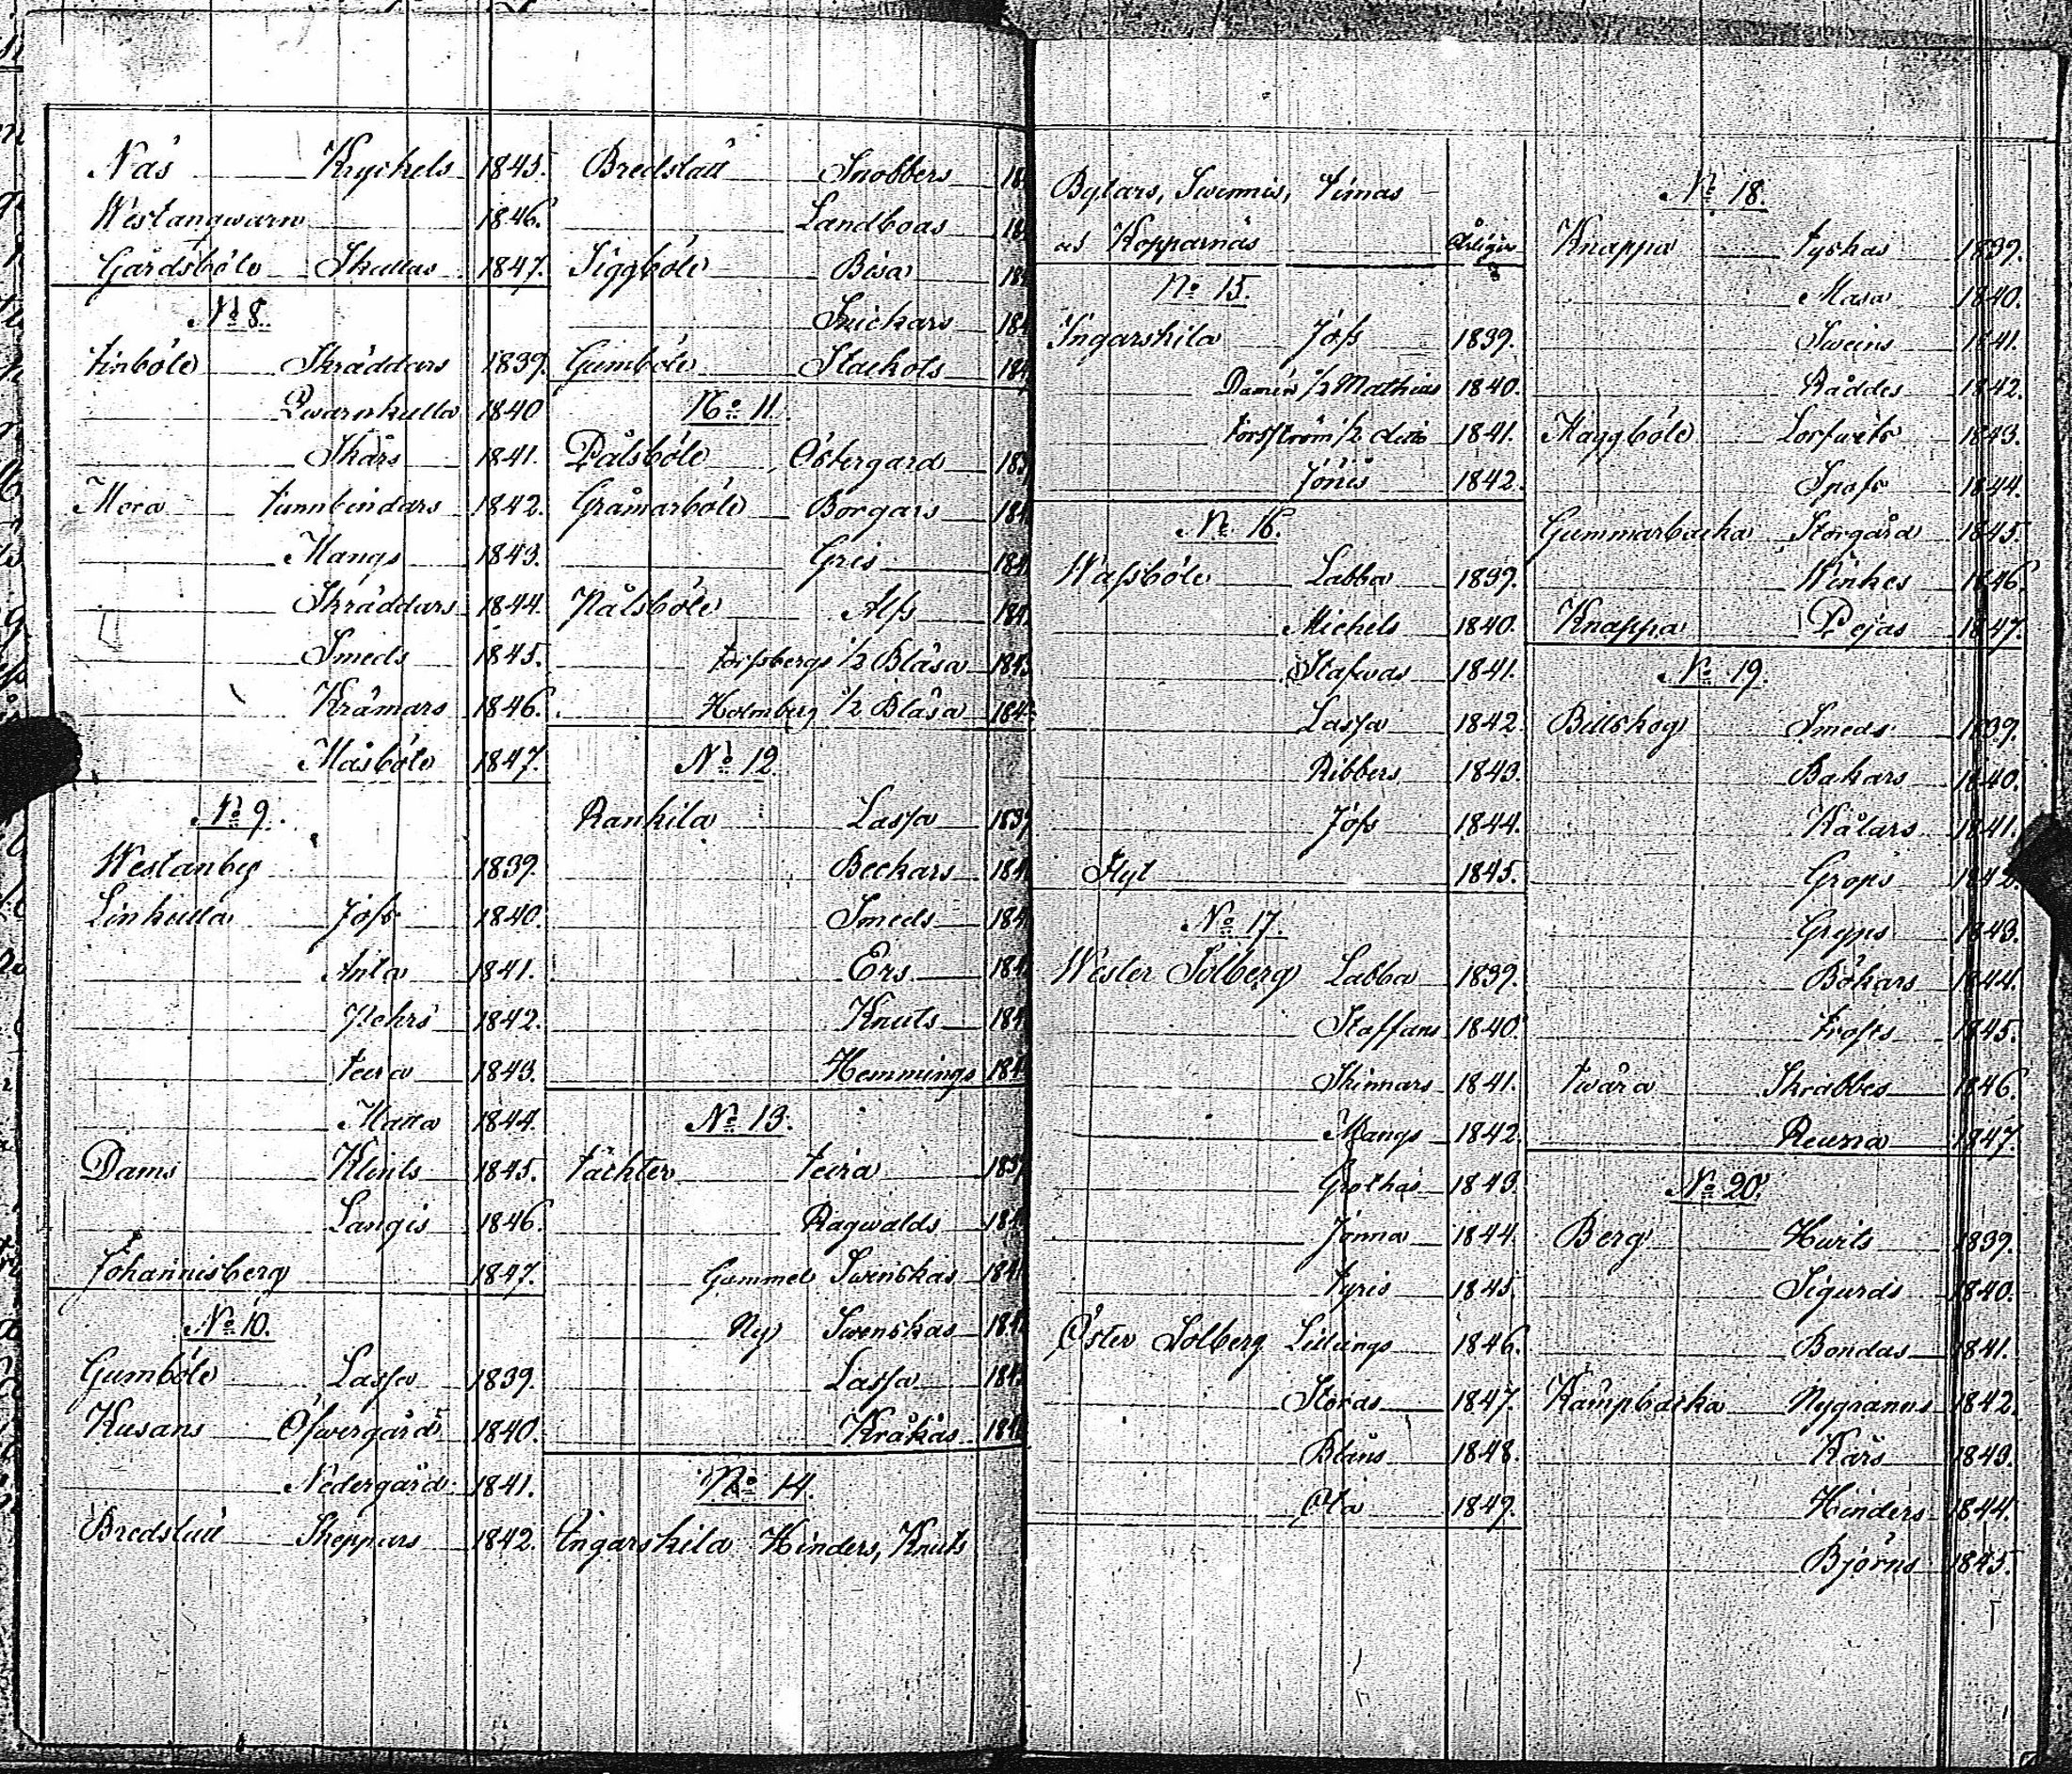 Näs Kyckels 1845.
Westanqwarn 1846.
Gårdsböle Skallas 1847.
No 8.
Finböle Skräddars 1839
Qwarnkulla 1840
Skårs 1841.
Mora Tunnbindars 1842.
Mangs 1843.
Skräddars 1844.
Smeds 1845.
Krämars 1846.
Måsböle 1847.
No 9.
Westanby 1839.
Linkulla Jofs 1840.
Anta 1841.
Pehrs 1842.
Teira 1843.
Matta 1844.
Dams Klints 1845.
Langis 1846.
Johannisberg 1847.
No 10.
Gumböle Lassa 1839.
Kusans Öfwergård 1840.
Nedergård 1841.
Bredslätt Skeppars 1842.
Bredslätt Snobbers
Landboas
Siggböle Bisa
Snickars
Gumböle Stackols
No 11.
Pålsböle Östergård
Gråmarböle Borgars
Gris
Pålsböle Alfs
Forssbergs 1/2 Blåsa
Holmberg 1/2 Blåsa
No 12
Rankila Lassa
Beckars
Smeds
Ers
Knuts
Hemmings
No 13.
Täckter Teira
Ragwalds
Gammel Swenskas
Ny Swenskas
Lassa
Kråkas
No 14.
Ingarskila Hinders, Knuts
Bylars, Swennis, Simas
ad Kopparnäs Årligen
No 15.
Ingarskila Jofs 1839.
1/2 Mathias 1840.
Forsström 1/2 dito 1841.
Jönis 1842.
No 16.
Wassböle Labba 1839.
Michels 1840.
Stafwas 1841.
Lassa 1842
Ribbers 1843
Jofs 1844.
Flyt 1845.
No 17.
Wester Solberg Labba 1839.
Staffans 1840
Skinnars 1841.
Mangs 1842
Grotkas 1843.
Jonna 1844
Tyris 1845.
Öster Solberg Lillungs 1846.
Storas 1847.
Blåns 1848.
Ola 1849.
No 18.
Knappa Tyskas 1839.
Masa 1840.
Sweins 1841.
Råddes 1842.
Kaggböle 1843.
Snafs 1844.
Gummarbacka Storgård 1845.
Winkes 1846.
Knappa Pejas 1847.
No 19.
Billskog Smeds 1839.
Bakars 1840.
Kålars 1841.
Grops 1842.
Gryps 1843.
Bökars 1844.
Trofts 1845.
Twära Skrabbes 1846.
Reuna 1847.
No 20.
Berg Hwits 1839.
Sigurds 1840.
Bondas 1841.
Kämpbacka Nygranns 1842
Kårs 1843.
Hinders 1844.
Björns 1845.